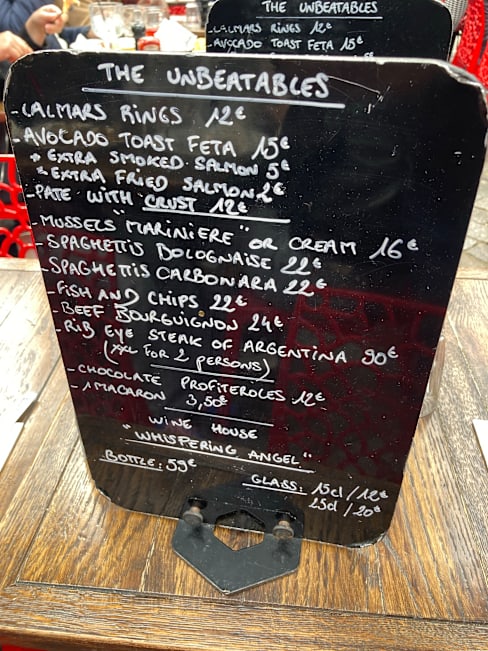 THE UNBEATABLES
-CALMARS RINGS 12€
-AVOCADO TOAST FETA 15€
THE UNBEATABLES
-CALMARS RINGS 12€
-AVOCADO TOAST FETA 15€
* EXTRA SMOKED SALMON 5€
* EXTRA FRIED SALMON 2€
-PATE WITH CRUST 12€
-MUSSELS "MARINIERE" OR CREAM 16€
-SPAGHETTIS BOLOGNAISE 22€
-SPAGHETTIS CARBONARA 22€
-FISH AND CHIPS 22€
-BEEF BOURGUIGNON 24€
-RIB EYE STEAK OF ARGENTINA 90€
(XXL FOR 2 PERSONS)
-CHOCOLATE PROFITEROLES 12€
-1 MACARON 3,50€
WINE HOUSE
"WHISPERING ANGEL"
BOTTLE: 59€
GLASS: 15cl / 12€
25cl / 20€